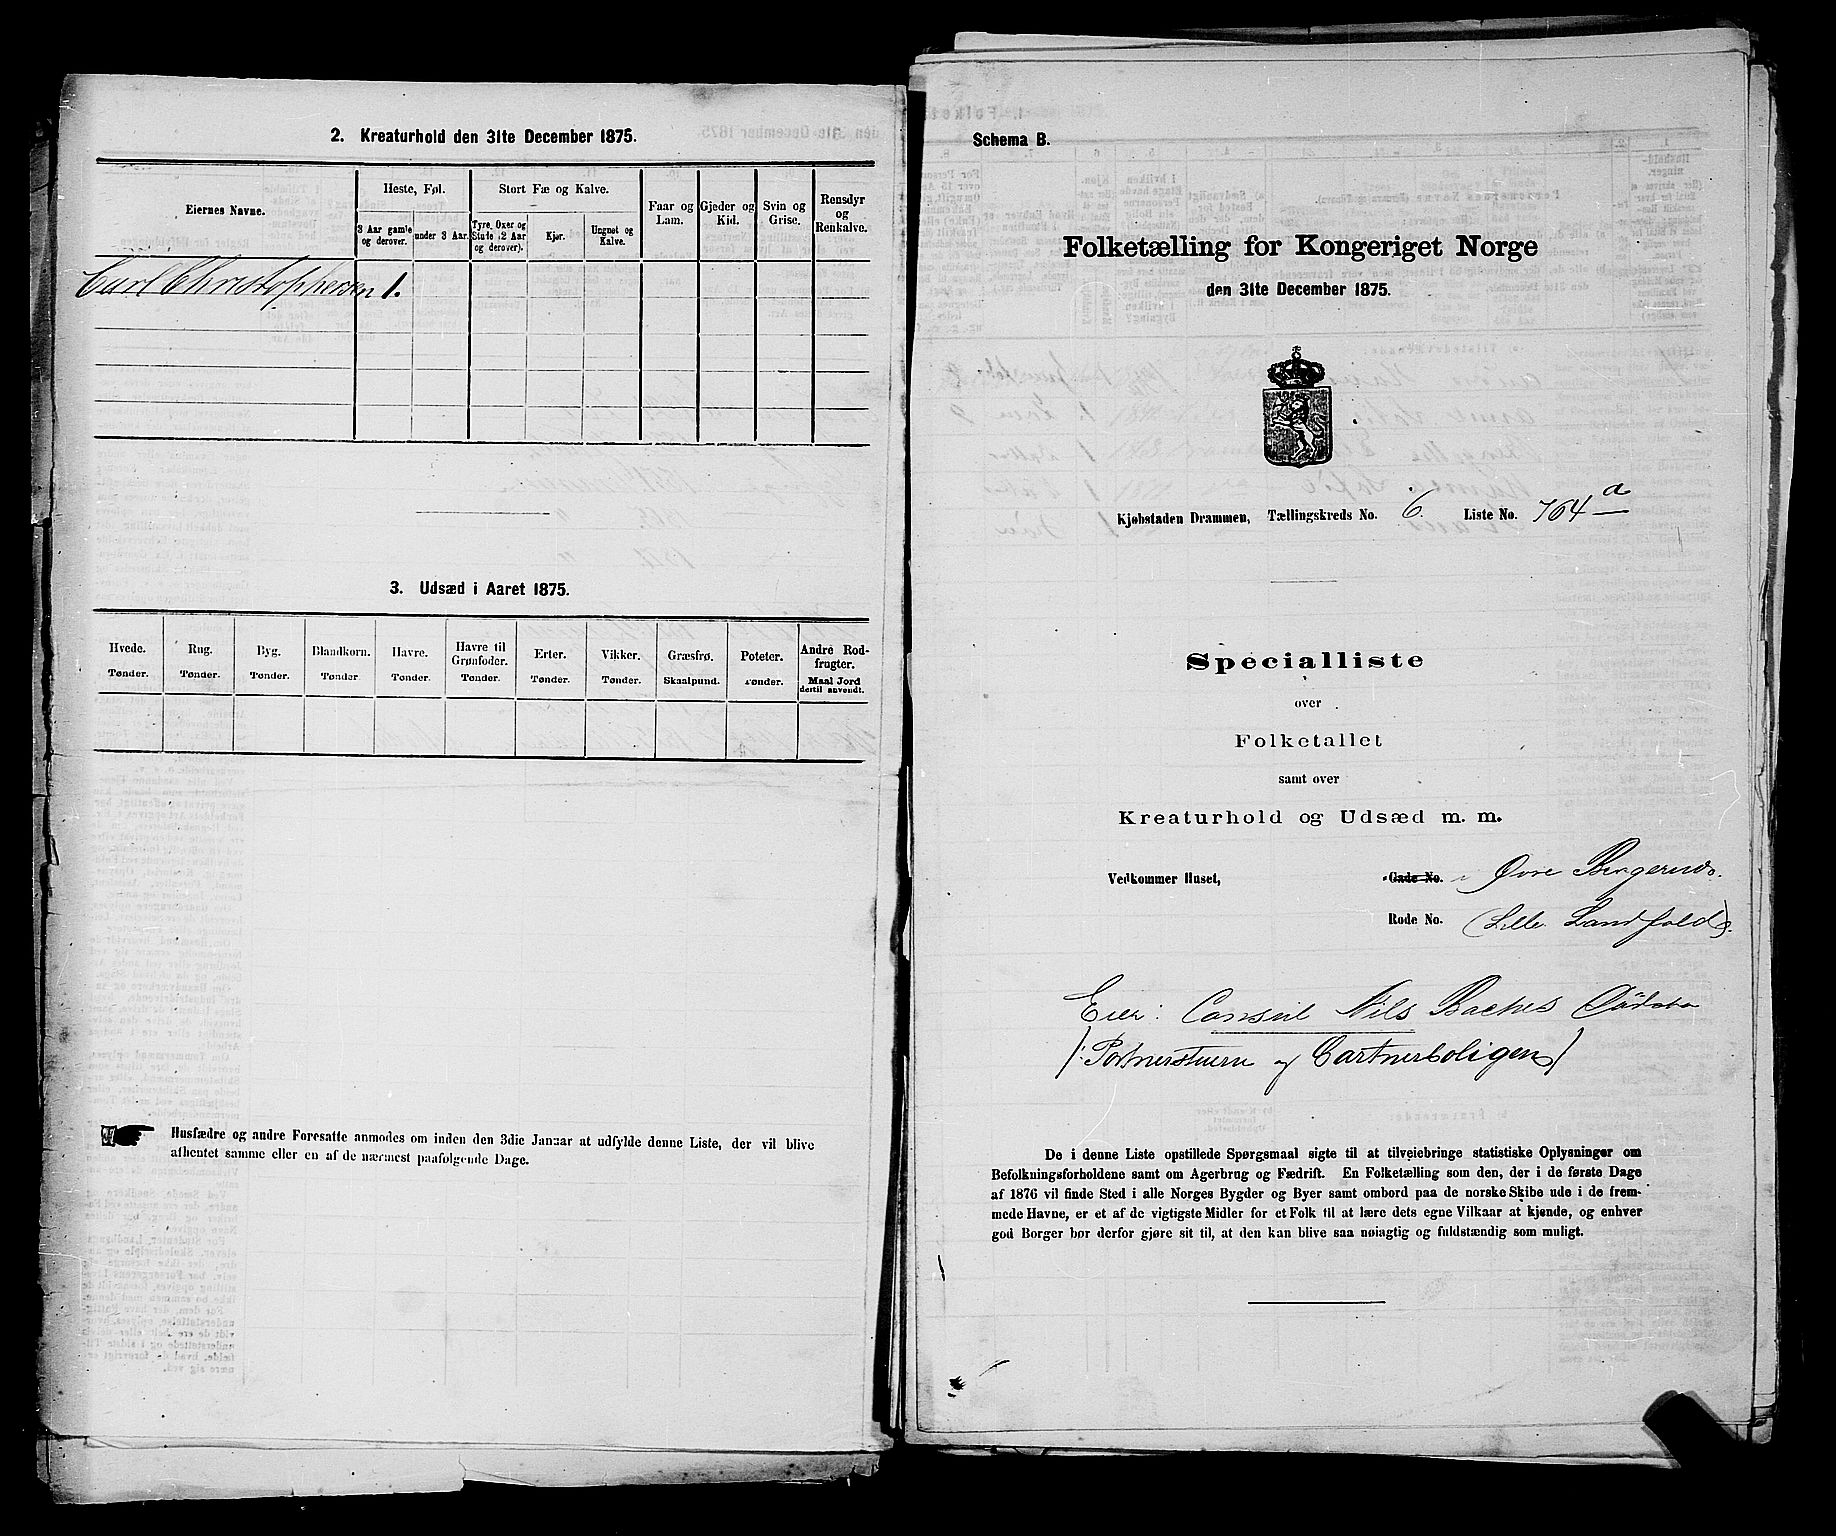 2. Kreaturhold den 31te December 1875.
Eiernes Navne.
Heste, Føl.
Stort Fæ og Kalve.
Faar og Lam.
Gjeder og Kid.
Svin og Grise.
Rensdyr og Renkalve.
3 Aar gamle og derover.
under 3 Aar.
Tyre, Oxer og Stude (2 Aar og derover).
Kjør.
Ungnøt og Kalve.
Carl Christophersen 1.
3. Udsæd i Aaret 1875.
Hvede. Tønder.
Rug. Tønder.
Byg. Tønder.
Blandkorn. Tønder.
Havre. Tønder.
Havre til Grønfoder. Tønder.
Erter. Tønder.
Vikker. Tønder.
Græsfrø. Skaalpund.
Poteter. Tønder.
Andre Rodfrugter. Maal Jord dertil anvendt.
Husfædre og andre Foresatte anmodes om inden den 3die Januar at udfylde denne Liste, der vil blive
afhentet samme eller en af de nærmest paafølgende Dage.
Schema B.
Folketælling for Kongeriget Norge
den 31te December 1875.
Kjøbstaden Drammen, Tællingskreds No. 6. Liste No. 764 a
Specialliste
over
Folketallet
samt over
Kreaturhold og Udsæd m. m.
Vedkommer Huset, Gade No. i Øvre Bragernæs.
Rode No. (Lille Landfald).
Eier: Consul Nils Baches
(: Portnerstuen og Gartnerboligen)
De i denne Liste opstillede Spørgsmaal sigte til at tilveiebringe statistiske Oplysninger om
Befolkningsforholdene samt om Agerbrug og Fædrift. En Folketælling som den, der i de første Dage
af 1876 vil finde Sted i alle Norges Bygder og Byer samt ombord paa de norske Skibe ude i de frem-
mede Havne, er et af de vigtigste Midler for et Folk til at lære dets egne Vilkaar at kjende, og enhver
god Borger bør derfor gjøre sit til, at den kan blive saa nøiagtig og fuldstændig som muligt.